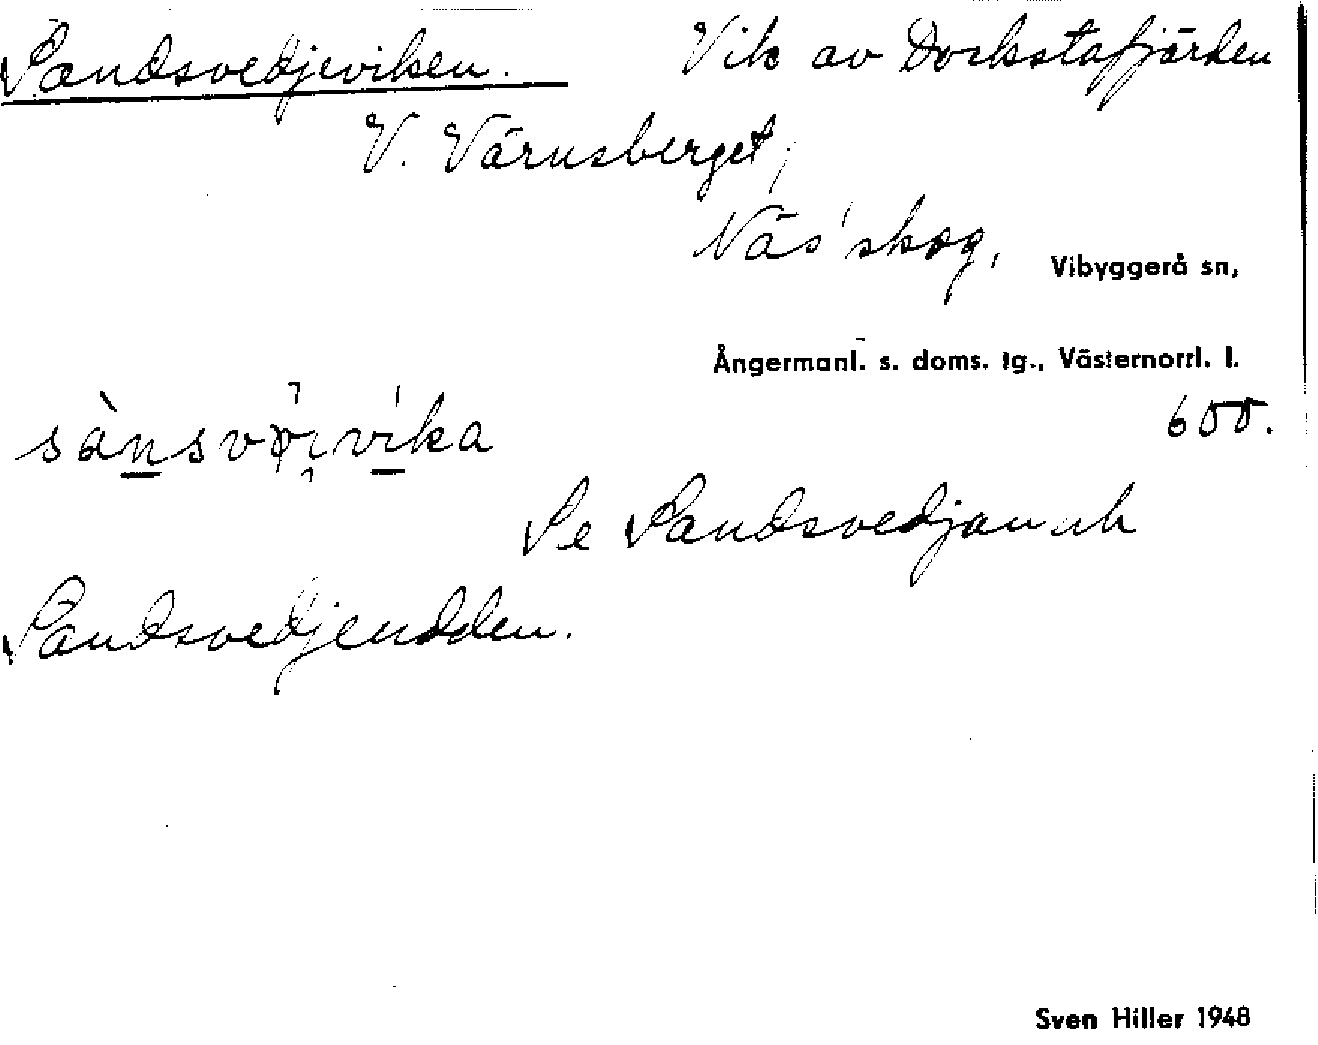 Sandsvedjeviken. Vik av Dockstafjärden
V. Värnsberget,
Näs' skog, Vibyggerå sn,
Ångermanl. s. doms. tg., Västernorrl. l.
600.
Se Sandsvedjan och
Sandsvedjeudden.
Sven Hiller 1948